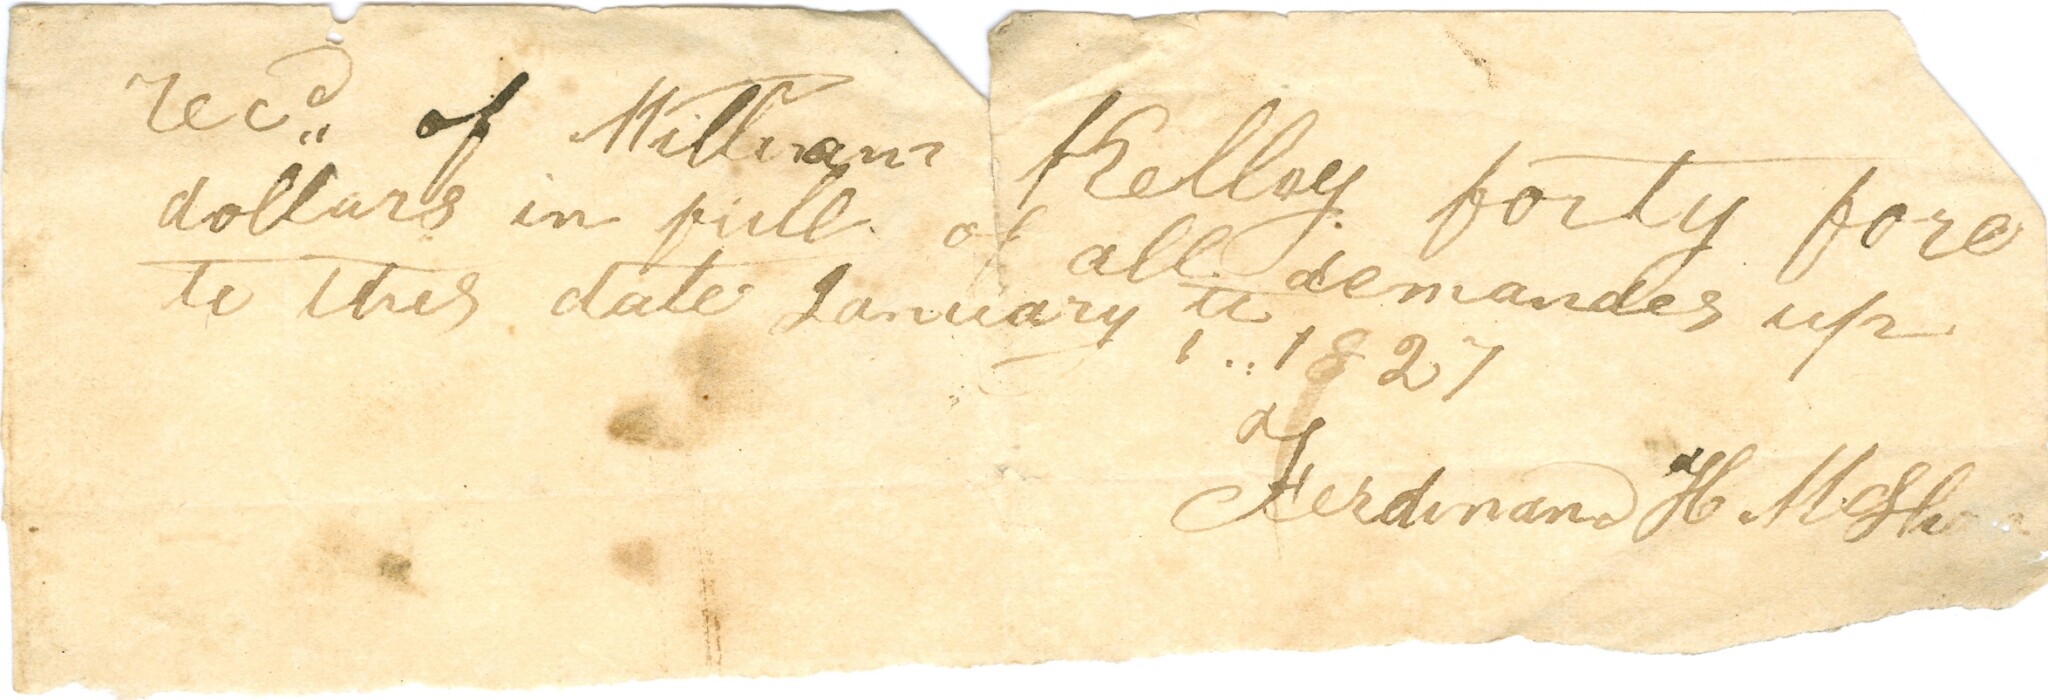 recd. of William Kelley forty fore
dollars in full of all demandes up
to this date January te 1..1827
Ferdinand H McSh